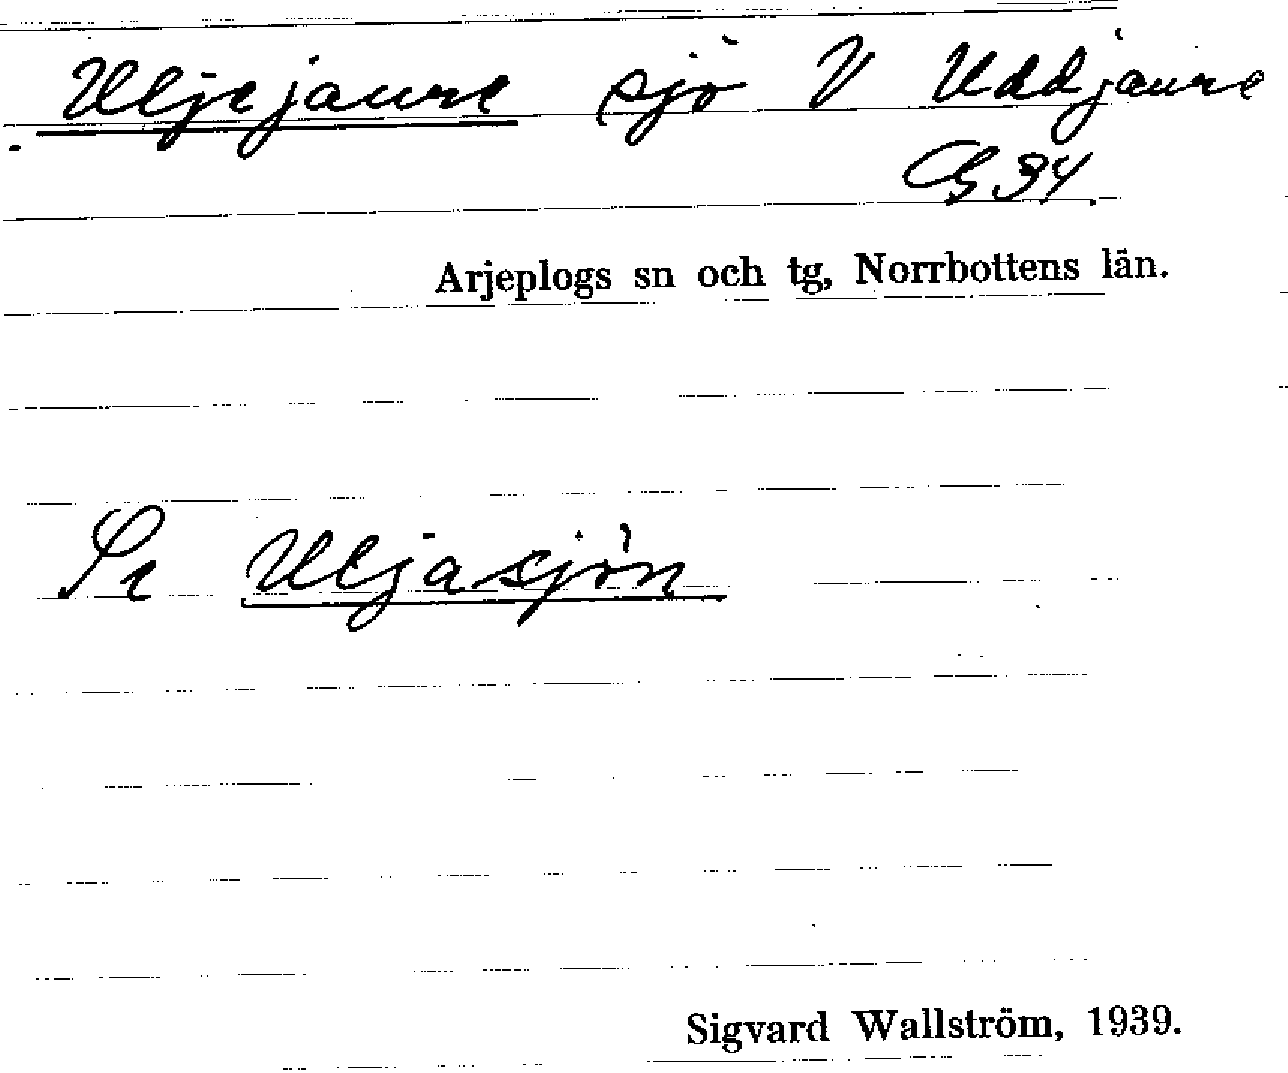 Uljejaure sjö V Uddjaure
G 34
Arjeplogs sn och tg, Norrbottens län.
Se Uljasjön
Sigvard Wallström, 1939.